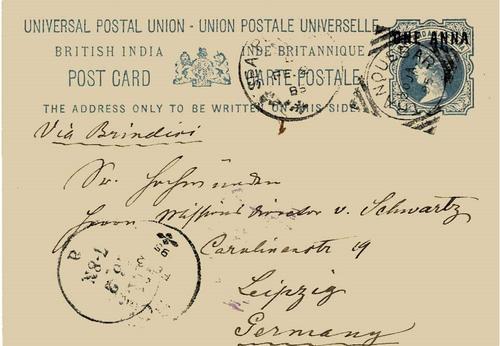 UNIVERSAL POSTAL UNION - UNION POSTALE UNIVERSELLE
BRITISH INDIA INDE BRITANNIQUE
POST CARD CARTE-POSTALE
THE ADDRESS ONLY TO BE WRITTEN ON THIS SIDE
ONE ANNA
Via Brindisi
Sr. Hochwürden
Herrn Missions Director v. Schwartz
Carolinenstr 19
Leipzig
Germany